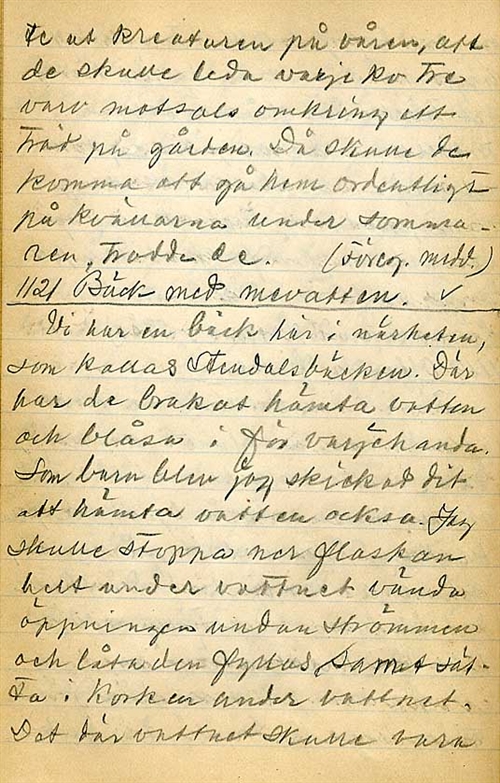 te ut kreaturen på våren, att
de skulle leda varje ko tre
varv motsols omkring ett
träd på gården. Då skulle de
komma att gå hem ordentligt
på kvällarna under somma-
ren, trodde de. (Föreg. medd.)
1121 Bäck med mevatten. ✓
Vi har en bäck här i närheten,
som kallas Stendalsbäcken. Där
har de brukat hämta vatten
och blåsa i för varjehanda.
Som barn blev jag skickad dit
att hämta vatten också. Jag
skulle stoppa ner flaskan
helt under vattnet vända
öppningen undan strömmen
och låta den fyllas, samt sät-
ta i korken under vattnet.
Det där vattnet skulle vara